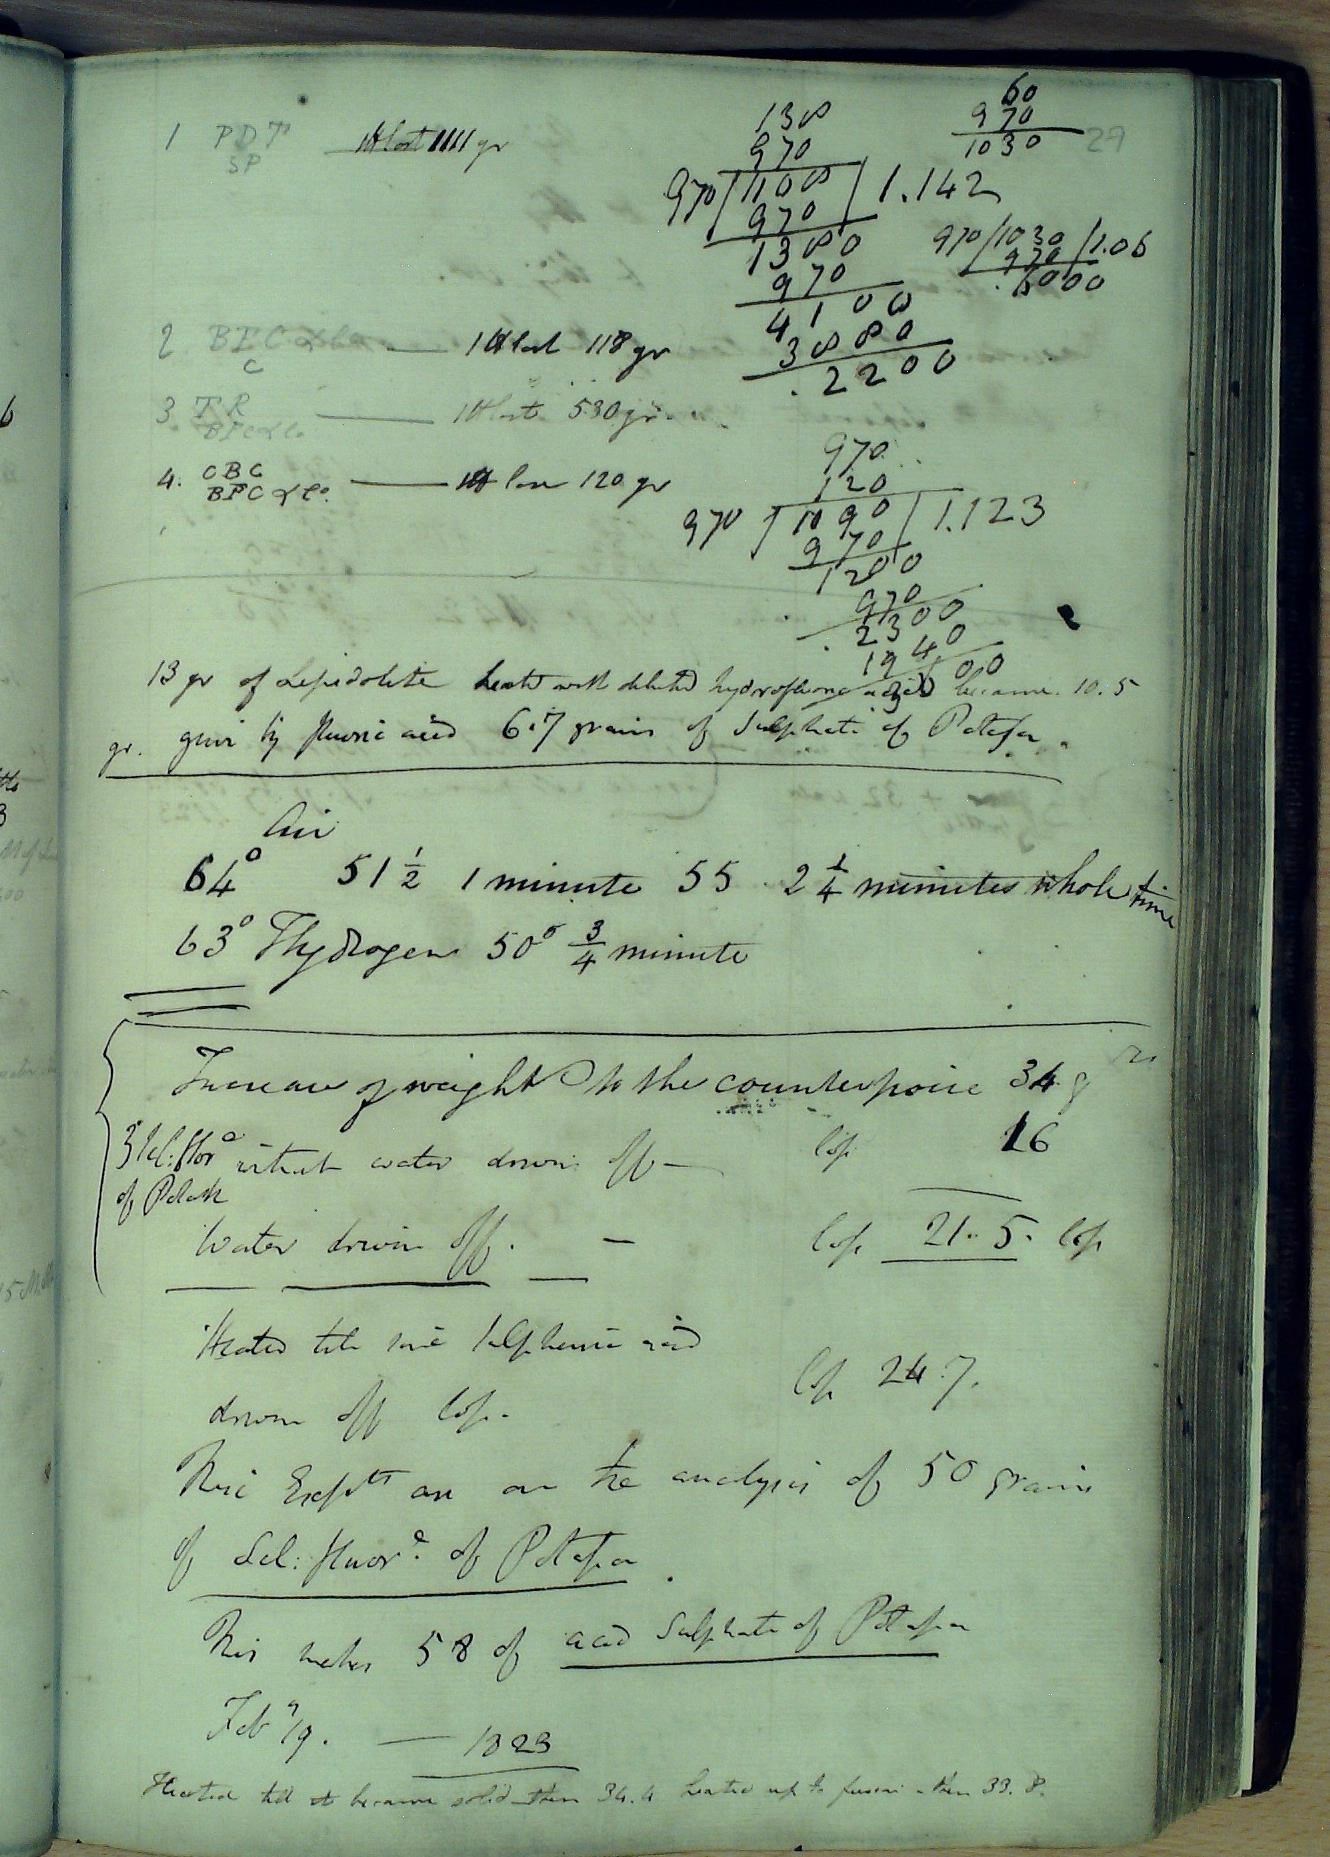 29
1 PDT
SP
It lost 1111 gr
138
970
970 / 1108 / 1.142
970
1380
970
4100
3880
. 2200
60
970
1030
970 / 1030 / 1.06
970
. 6000
2 BPC & Co
C
— It lost 118 gr
3 TR
BPC & Co
— It lost 530 gr.
4. OBC
BPC & Co.
— It lose 120 gr
970
120
970 / 1090 / 1.123
970
1200
970
. 2300
1940
13 gr of Lepidolite heated with diluted hydrofluoric acid became 10.5
gr. give by fluoric acid 6.7 grains of Sulphate of Potassa.
Air
64° 51 1/2 1 minute 55 2 1/4 minutes whole time
63° Hydrogen 50° 3/4 minute
Increase of weight to the counterpoise 34 grs
Sel: fluore of Potash
without water driven off — loss 16
Water driven off. — loss 21.5. loss
Heated till some sulphuric acid
driven off loss. loss 24.7.
This Expts are on the analysis of 50 grains
of Sel: fluore. of Potassa.
This makes 58 of acid Sulphate of Potassa
Feb 7/9. — 1823
Heated till it became solid then 34.4 heated up to fusion - then 33.8.